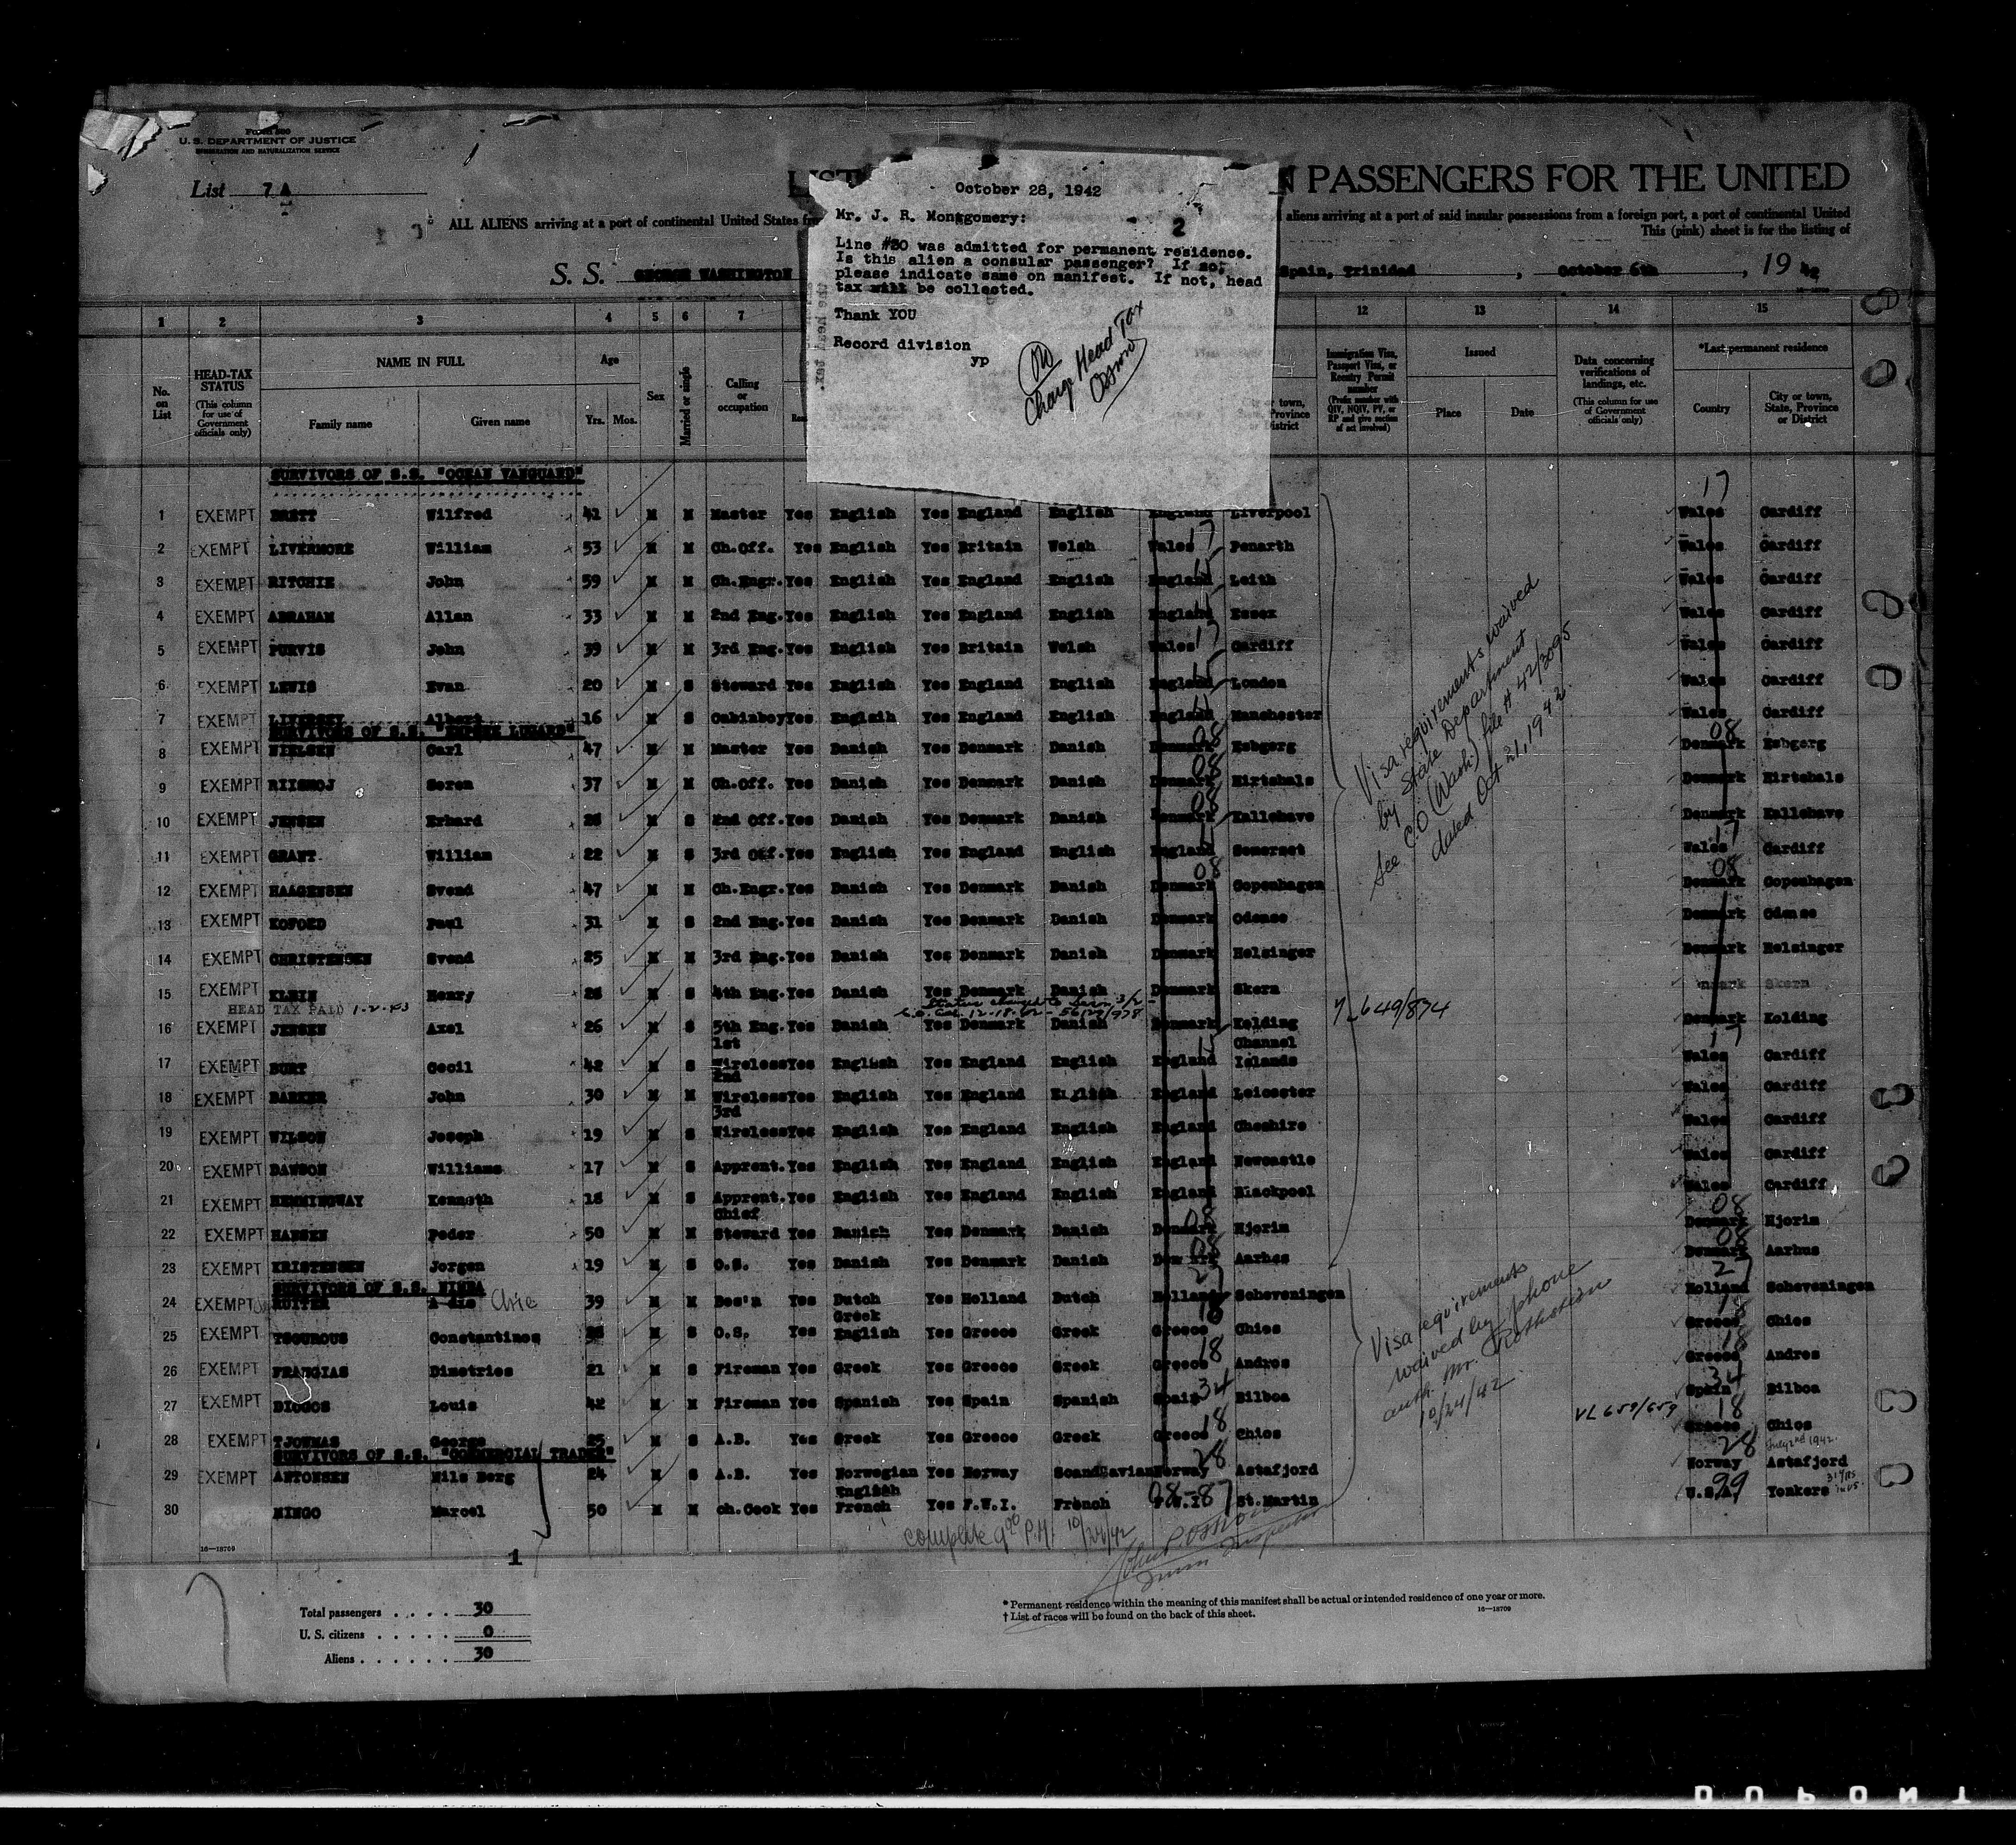 Form 500
U. S. DEPARTMENT OF JUSTICE
IMMIGRATION AND NATURALIZATION SERVICE
List 7 A
LIST N PASSENGERS FOR THE UNITED
ALL ALIENS arriving at a port of continental United States fro
aliens arriving at a port of said insular possessions from a foreign port, a port of continental United
This (pink) sheet is for the listing of
S. S. GEORGE WASHINGTON Spain, Trinidad , October 6th , 19 42
October 28, 1942
Mr. J. R. Montgomery:
2
Line #30 was admitted for permanent residence.
Is this alien a consular passenger? If so,
please indicate same on manifest. If not, head
tax will be collected.
Thank YOU
Record division
yp
Charge Head Tax
1 2 3 4 5 6 7 12 13 14 15
No. on List
HEAD-TAX STATUS
(This column for use of Government officials only)
NAME IN FULL
Family name Given name
Age
Yrs. Mos.
Sex
Married or single
Calling or occupation
town, Province District
Immigration Visa, Passport Visa, or Reentry Permit number
(Prefix number with QIV, NQIV, PV, or RP and give section of act involved)
Issued
Place Date
Data concerning verifications of landings, etc.
(This column for use of Government officials only)
*Last permanent residence
Country City or town, State, Province or District
SURVIVORS OF S.S. "OCEAN VANGUARD"
17
1 EXEMPT BRETT Wilfred 41 M M Master Yes English Yes England English England Liverpool Wales Cardiff
2 EXEMPT LIVERMORE William 53 M M Ch.Off. Yes English Yes Britain Welsh Wales 17 Penarth Wales Cardiff
3 EXEMPT RITCHIE John 59 M M Ch.Engr. Yes English Yes England English England Leith Wales Cardiff
4 EXEMPT ABRAHAM Allan 33 M M 2nd Eng. Yes English Yes England English England Essex Wales Cardiff
5 EXEMPT PURVIS John 39 M M 3rd Eng. Yes English Yes Britain Welsh Wales 17 Cardiff Wales Cardiff
6 EXEMPT LEWIS Evan 20 M S Steward Yes English Yes England English England London Wales Cardiff
7 EXEMPT LIVERSEY Albert 16 M S Cabinboy Yes English Yes England English England Manchester Wales Cardiff
SURVIVORS OF S.S. "EMPIRE LUGARD"
8 EXEMPT NIELSEN Carl 47 M M Master Yes Danish Yes Denmark Danish Denmark 08 Esbgerg Denmark 08 Esbgerg
9 EXEMPT RIISHOJ Soren 37 M M Ch.Off. Yes Danish Yes Denmark Danish Denmark 08 Hirtshals Denmark Hirtshals
10 EXEMPT JENSEN Erhard M S 2nd Off. Yes Danish Yes Denmark Danish Denmark 08 Kallehave Denmark Kallehave
11 EXEMPT GRANT William 22 M S 3rd Off. Yes English Yes England English England Somerset Wales 17 Cardiff
12 EXEMPT HAAGENSEN Svend 47 M M Ch.Engr. Yes Danish Yes Denmark Danish Denmark 08 Copenhagen Denmark 08 Copenhagen
13 EXEMPT KOFOED Paul 31 M S 2nd Eng. Yes Danish Yes Denmark Danish Denmark Odense Denmark Odense
14 EXEMPT CHRISTENSEN Svend 25 M M 3rd Eng. Yes Danish Yes Denmark Danish Denmark Helsinger Denmark Helsinger
15 EXEMPT KLEIN Henry M S 4th Eng. Yes Danish Yes Denmark Danish Denmark Skern nmark Skern
HEAD TAX PAID 1-2-43
16 EXEMPT JENSEN Axel 26 M S 5th Eng. Yes Danish Yes Denmark Danish Denmark Kolding Denmark Kolding
17 EXEMPT BURT Cecil 42 M S 1st Wireless Yes English Yes England English England Channel Islands Wales 17 Cardiff
18 EXEMPT BARKER John 30 M M 2nd Wireless Yes English Yes England English England Leicester Wales Cardiff
19 EXEMPT WILSON Joseph 19 M S 3rd Wireless Yes English Yes England English England Cheshire Wales Cardiff
20 EXEMPT DAWSON Williams 17 M S Apprent. Yes English Yes England English England Newcastle Wales Cardiff
21 EXEMPT HEMMINGWAY Kenneth 18 M S Apprent. Yes English Yes England English England Blackpool Wales Cardiff
22 EXEMPT HANSEN Peder 50 M M Chief Steward Yes Danish Yes Denmark Danish Denmark 08 Hjorim Denmark 08 Hjorim
23 EXEMPT KRISTENSEN Jorgen 19 M S O.S. Yes Danish Yes Denmark Danish Denmark 08 Aarhes Denmark 08 Aarhus
SURVIVORS OF S.S. NIMBA
24 EXEMPT RUITER Arie 39 M M Bos'n Yes Dutch Yes Holland Dutch Holland 27 Scheveningen Holland 27 Scheveningen
25 EXEMPT TSOUROUS Constantinos M S O.S. Yes Greek English Yes Greece Greek Greece 18 Chios Greece 18 Chios
26 EXEMPT FRANGIAS Dimetries 21 M S Fireman Yes Greek Yes Greece Greek Greece 18 Andros Greece 18 Andros
27 EXEMPT DIOGOS Louis 42 M M Fireman Yes Spanish Yes Spain Spanish Spain 34 Bilboa Spain 34 Bilboa
28 EXEMPT TJOWMAS George 25 M S A.B. Yes Greek Yes Greece Greek Greece 18 Chios VL 659/659 Greece 18 Chios
SURVIVORS OF S.S. "COMMERCIAL TRADER"
29 EXEMPT ANTONSEN Nils Berg 24 M S A.B. Yes Norwegian Yes Norway Scandavian Norway 28 Astafjord Norway 28 Astafjord
July 2nd 1942
30 MINGO Marcel 50 M M ch.Cook Yes English French Yes F.W.I. French F.W.I. 08-87 St.Martin U.S.A. 99 Yonkers 31 yrs in US
Visa requirements waived
by State Department
See C.O. (Wash.) file # 42/3095
dated Oct 21, 1942
Visa requirements
waived by phone
auth. Mr.
10/24/42
complete 9 P.M.
16—18709
1
Total passengers . . . . 30
U. S. citizens . . . . . 0
Aliens . . . . . . 30
* Permanent residence within the meaning of this manifest shall be actual or intended residence of one year or more.
† List of races will be found on the back of this sheet.
16—18709